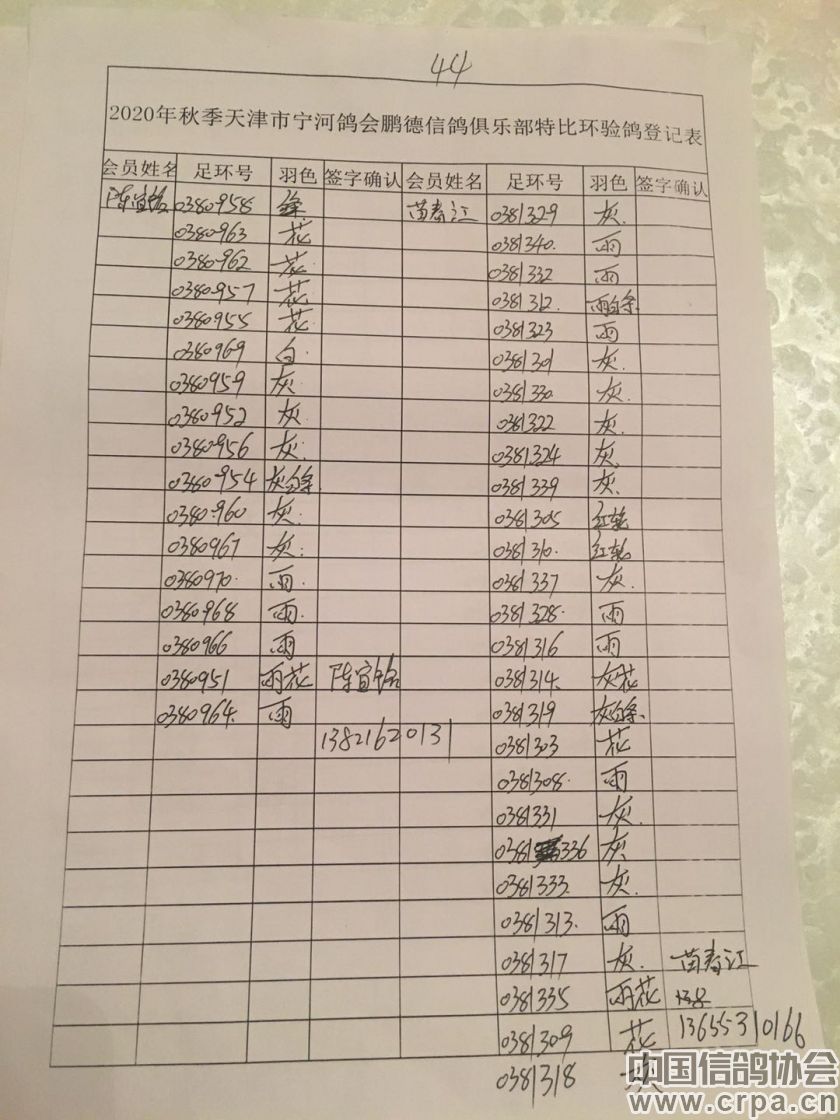 44
2020年秋季天津市宁河鸽会鹏德信鸽俱乐部特比环验鸽登记表
会员姓名 足环号 羽色 签字确认 会员姓名 足环号 羽色 签字确认
陈宜铭 0380958 绛 苗春江 0381329 灰
0380963 花 0381340 雨
0380962 花 0381332 雨
0380957 花 0381312 雨白条
0380955 花 0381323 雨
0380969 白 0381301 灰
0380959 灰 0381330 灰
0380952 灰 0381322 灰
0380956 灰 0381324 灰
0380954 灰白条 0381339 灰
0380960 灰 0381305 红轮
0380967 灰 0381310 红轮
0380970 雨 0381337 灰
0380968 雨 0381328 雨
0380966 雨 0381316 雨
0380951 雨花 陈宜铭 0381314 灰花
0380964 雨 0381319 灰白条
13821620131 0381303 花
0381308 雨
0381331 灰
0381336 灰
0381333 灰
0381313 雨
0381317 灰 苗春江
0381335 雨花 138
0381309 花 13655310166
0381318 灰
中国信鸽协会
www.crpa.cn